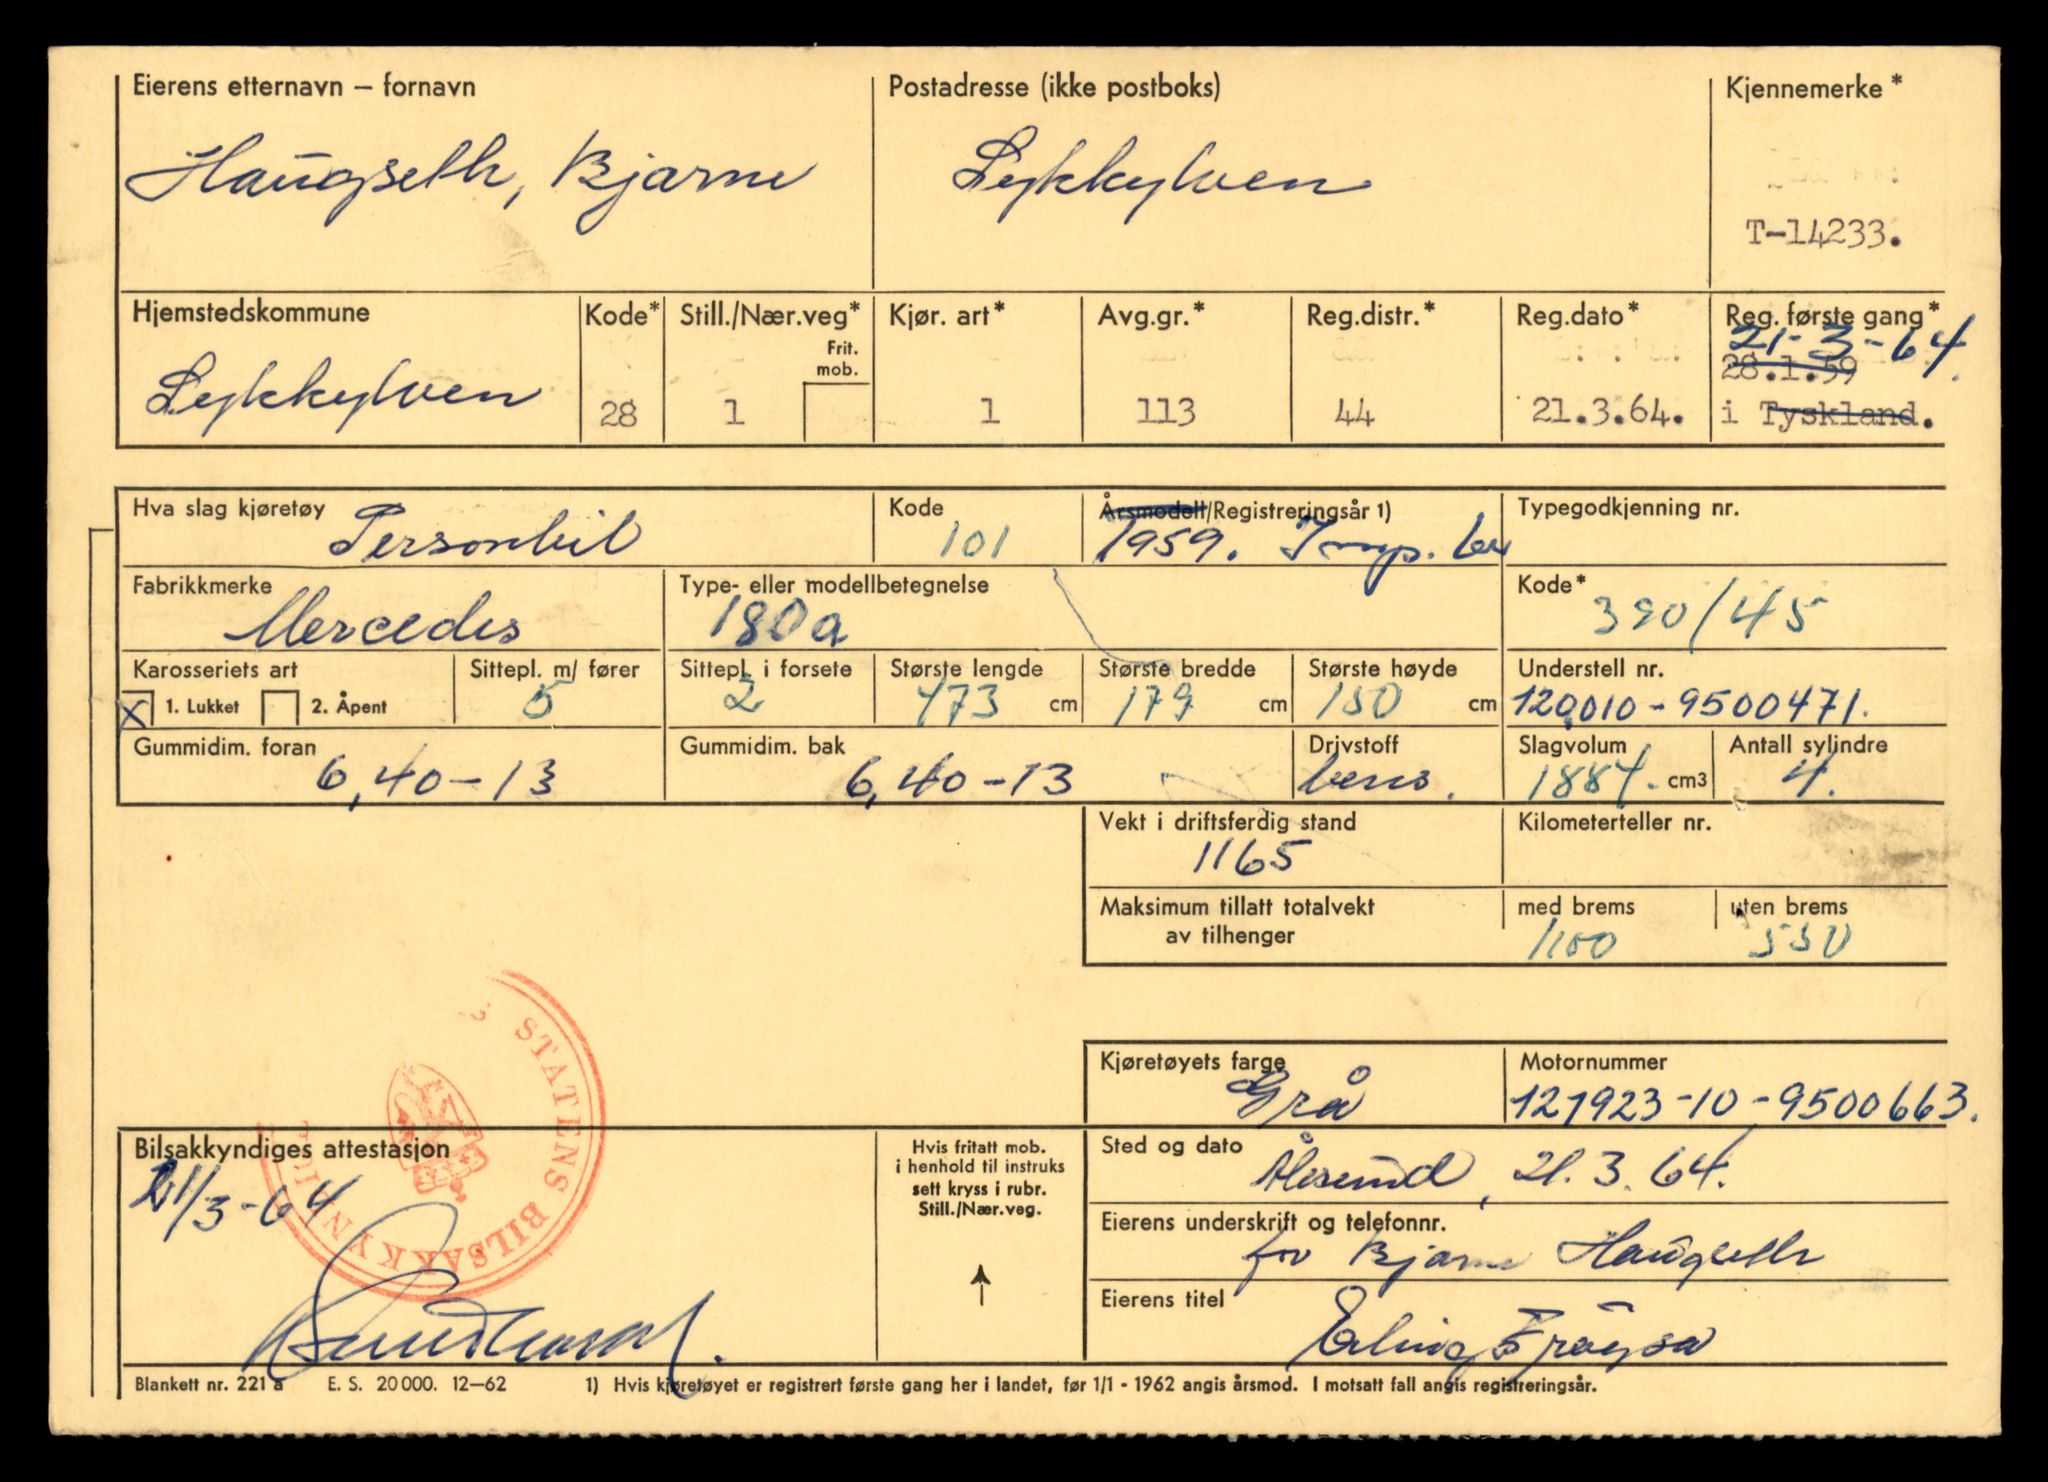 Eierens etternavn – fornavn Postadresse (ikke postboks) Kjennemerke*
Haugseth, Bjarne Sykkylven
T-14233.
Hjemstedskommune Kode* Still./Nær.veg* Kjør. art* Avg.gr.* Reg.distr.* Reg.dato* Reg. første gang*
Frit. mob.
21-3-64.
28.1.59
Sykkylven 28 1 1 113 44 21.3.64. i Tyskland.
Hva slag kjøretøy Kode Årsmodell/Registreringsår 1) Typegodkjenning nr.
Personbil 101 1959. Imp. br
Fabrikkmerke Type- eller modellbetegnelse Kode*
Mercedes 180a 390/45
Karosseriets art Sittepl. m/ fører Sittepl. i forsete Største lengde Største bredde Største høyde Understell nr.
X 1. Lukket 2. Åpent 5 2 473 cm 179 cm 150 cm 120010-9500471.
Gummidim. foran Gummidim. bak Drivstoff Slagvolum Antall sylindre
6,40-13 6,40-13 bens. 1884. cm3 4.
Vekt i driftsferdig stand Kilometerteller nr.
1165
Maksimum tillatt totalvekt med brems uten brems
av tilhenger 1100 550
Kjøretøyets farge Motornummer
Grå 121923-10-9500663.
STATENS BILSAKKYN
Bilsakkyndiges attestasjon Hvis fritatt mob. Sted og dato
i henhold til instruks
sett kryss i rubr.
Still./Nær.veg.
21/3-64 Ålesund, 21.3.64.
Eierens underskrift og telefonnr.
for Bjarne Haugseth
Eierens titel
Erling Frøysa
Blankett nr. 221 a E. S. 20 000. 12–62 1) Hvis kjøretøyet er registrert første gang her i landet, før 1/1 - 1962 angis årsmod. I motsatt fall angis registreringsår.